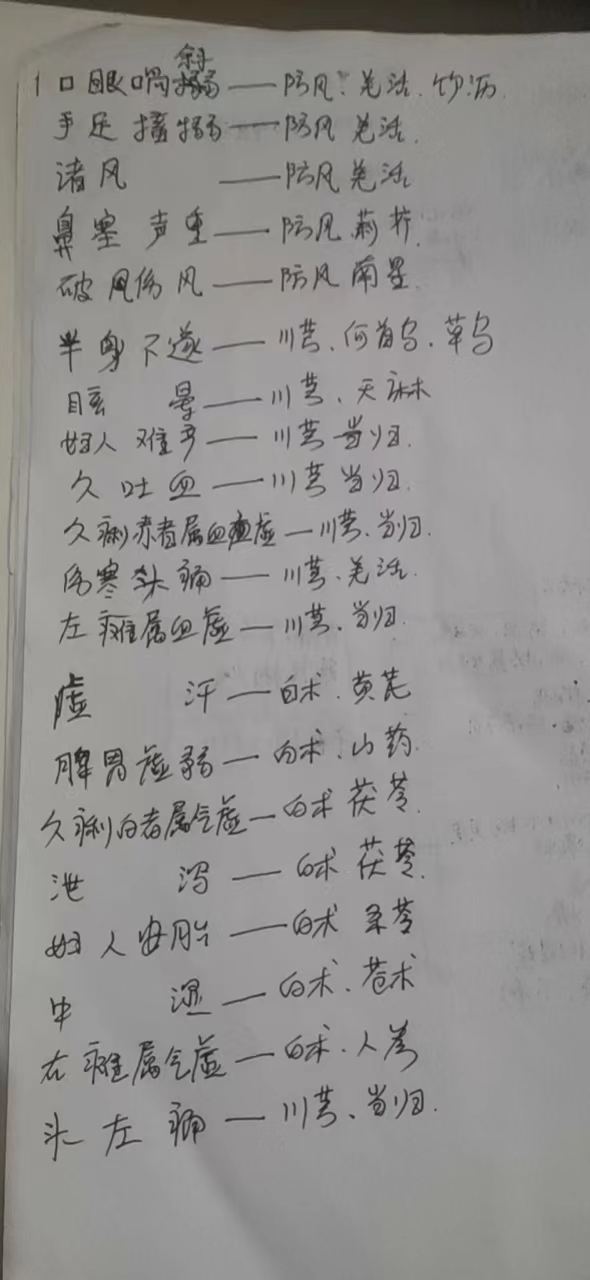 1 口眼喎斜——防风、羌活、竹沥
手足搐搦——防风 羌活.
诸风——防风 羌活
鼻塞声重——防风 荆芥.
破风伤风——防风 南星
半身不遂——川芎、何首乌、草乌
眩晕——川芎、天麻
妇人难产——川芎 当归.
久吐血——川芎 当归.
久痢赤者属血虚——川芎、当归.
伤寒头痛——川芎、羌活.
左瘫属血虚——川芎、当归.
虚汗——白术、黄芪
脾胃虚弱——白术、山药.
久痢白者属气虚——白术 茯苓.
泄泻——白术 茯苓.
妇人安胎——白术 条芩
中湿——白术、苍术
右瘫属气虚——白术、人参
头左痛——川芎、当归.